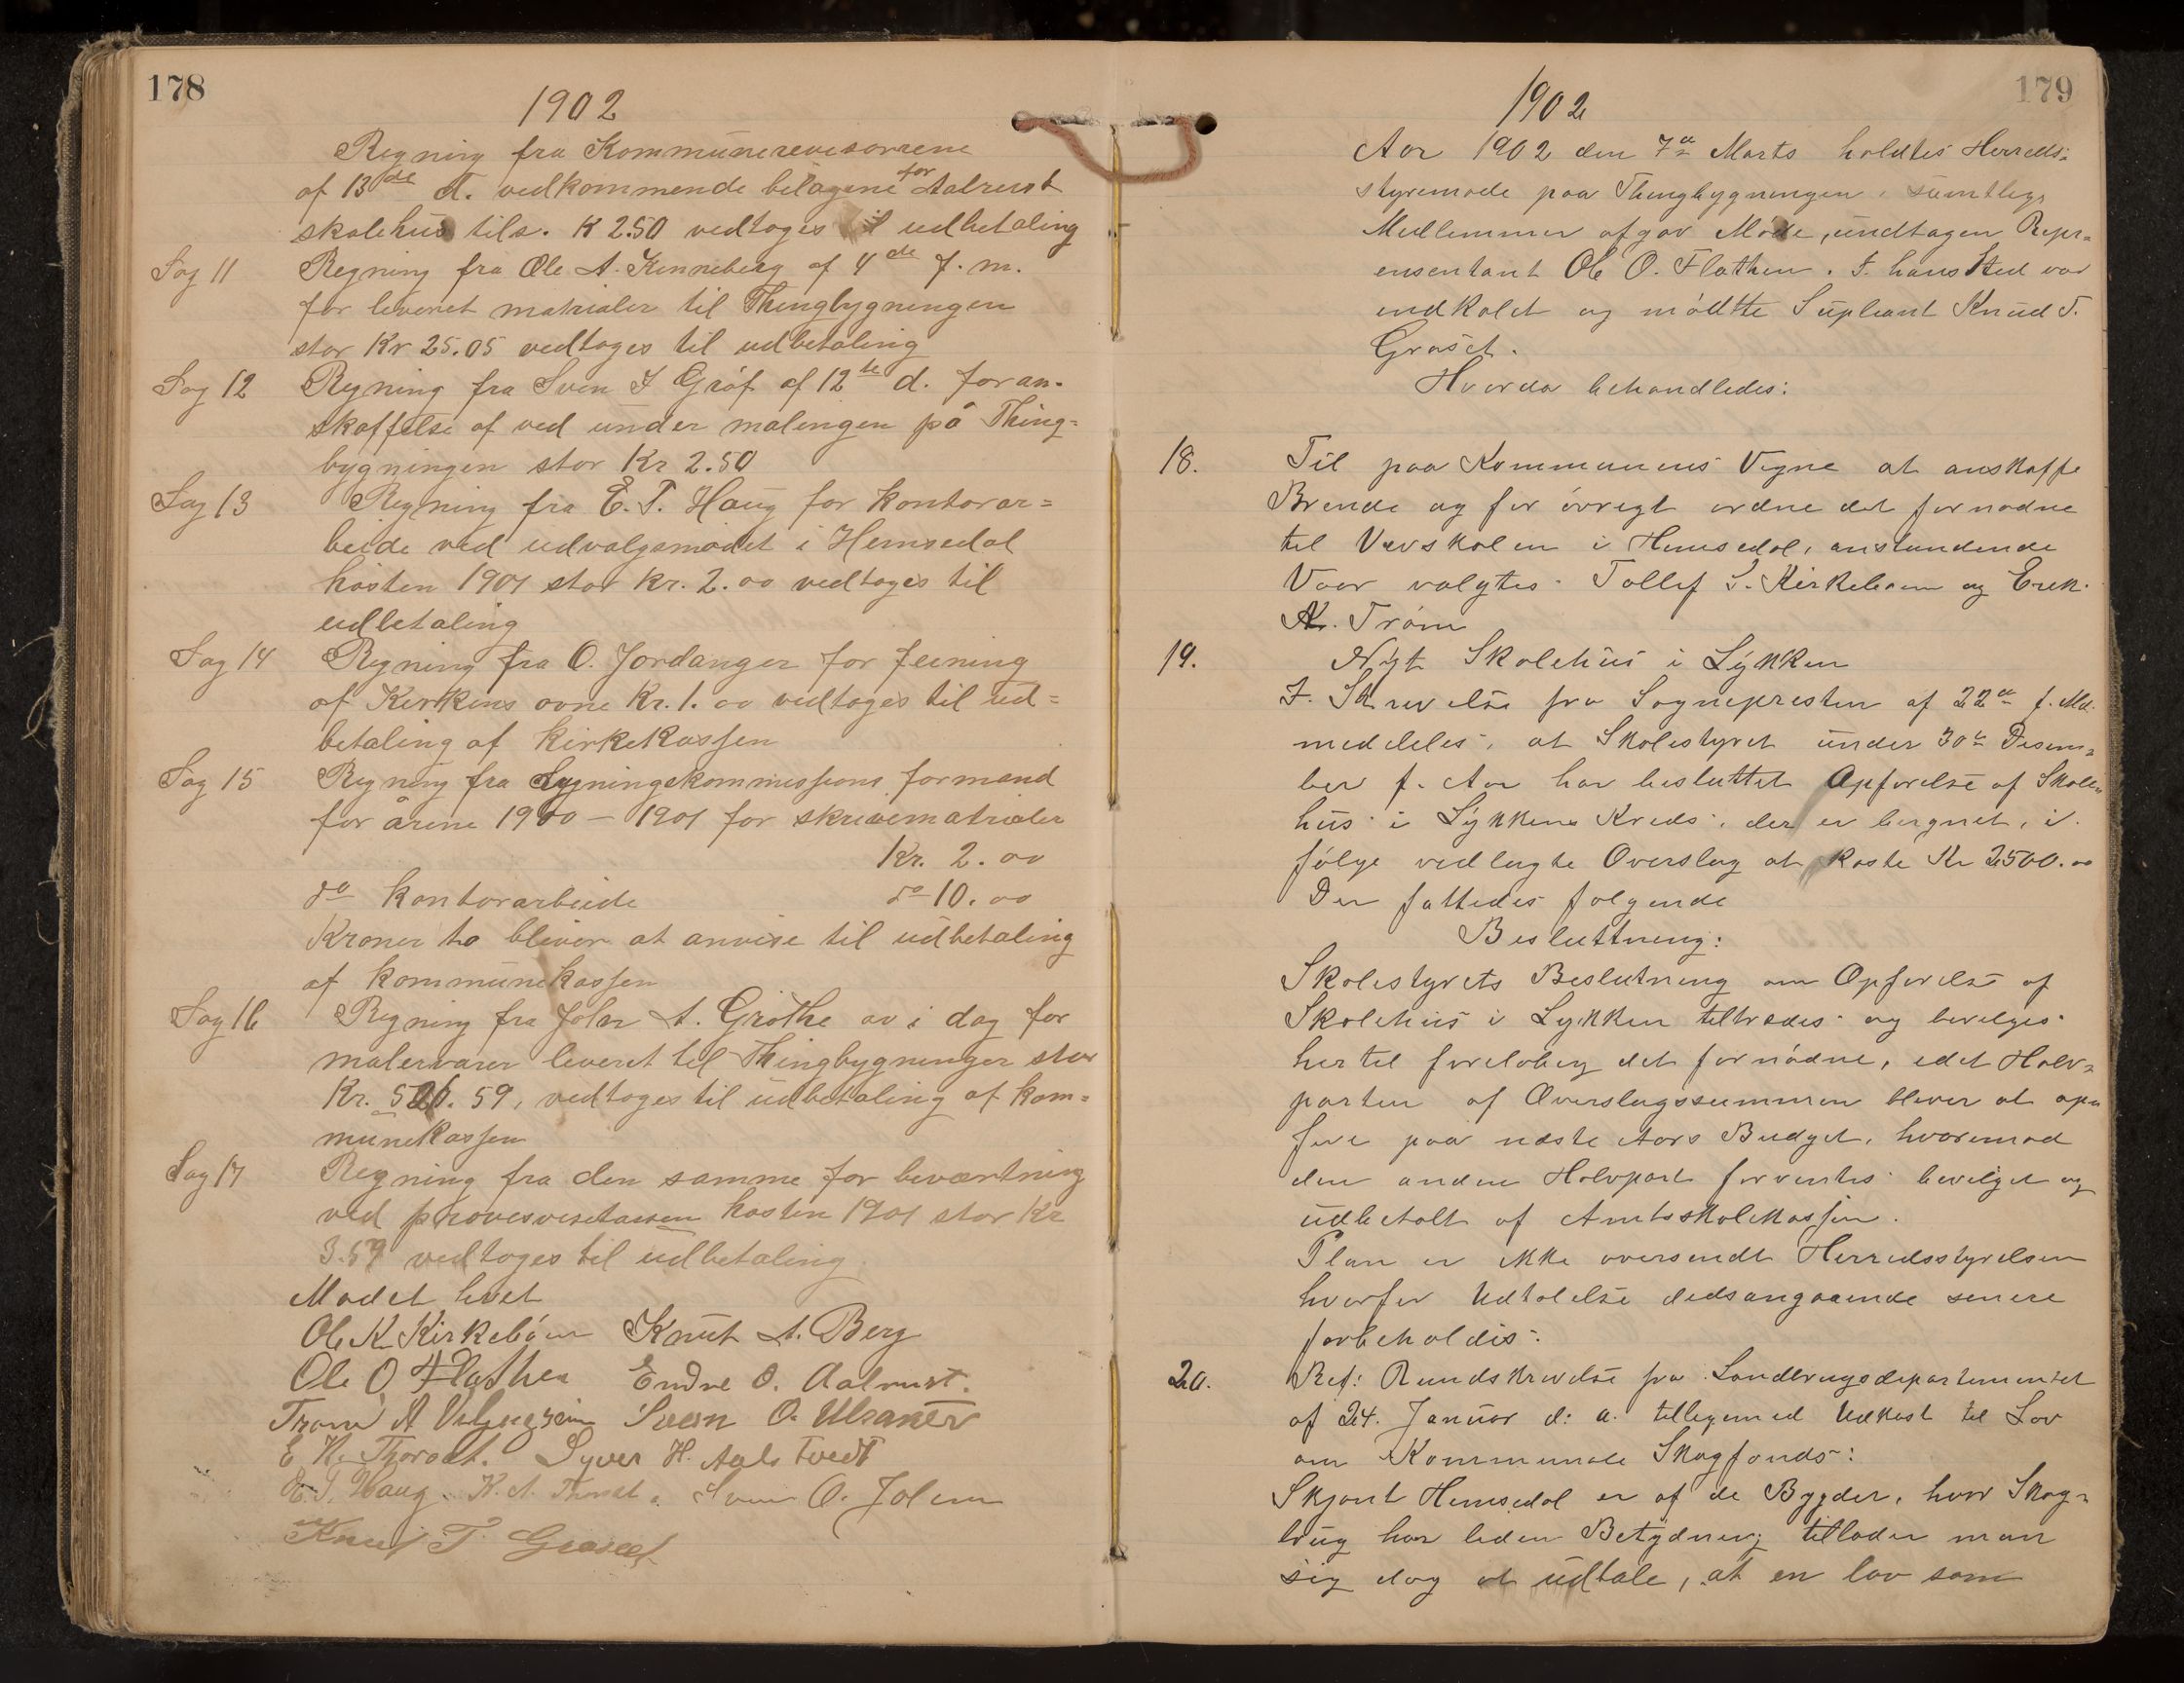 178
1902
Regning fra Kommunerevisorene
af 13de d. vedkommende bilagene for Aalrust
skolehus tils. K 2.50 vedtoges til udbetaling
Sag 11 Regning fra Ole A. Kinneberg af 4de f.m.
for leveret matrialer til Thingbygningen
stor Kr 25.05 vedtoges til udbetaling
Sag 12 Regning fra Sven I Gróf af 12te d. for an-
skaffelse af ved under malingen på Thing=
bygningen stor Kr 2.50
Sag 13 Regning fra E. T. Haug for kontorar=
beide ved udvalgsmødet i Hemsedal
hósten 1901 stor kr. 2.00 vedtoges til
udbetaling
Sag 14 Regning fra O. Jordanger for feining
af Kirkens ovne Kr. 1.00 vedtoges til ud=
betaling af kirkekassen
Sag 15 Regning fra Ligningskommissions formand
for årene 1900 – 1901 for skrivematrialer
Kr. 2.00
do kontorarbeide do 10.00
Kroner to bliver at anvise til udbetaling
af kommunekassen
Sag 16 Regning fra A. Gróthe av i dag for
malervarer leveret til Thingbygninger stor
Kr. 59, vedtoges til udbetaling af kom=
munekassen
Sag 17 Regning fra den samme for beværtning
ved provesvisitasen hosten 1901 stor Kr
3.59 vedtoges til udbetaling
Mødet hevet
Ole K Kirkebóen Knut A. Berg
Ole O, Flathen Endre O. Aalrust.
Trond A Sven O. Ulsaker
E N. Thorset. Syver H. Aalstvedt
E. T. Haug. K. A. Sven O. Jolem
Knud T. Grøset
179
1902
Aar 1902 den 7de Marts holdtes Herreds=
styremøde paa Thingbygningen, samtlige
Medlemmer afgav Møde, undtagen Repr=
ensentant Ole O. Flathen. I hans Sted var
indkaldt og mødtte Supleant Knud T.
Grøset.
Hvorda behandledes:
18. Til paa Kommunens Vegne at anskaffe
Brende og for óvregt ordne det fornødne
til Vævskolen i Hemsedal, anstundende
Vaar valgtes Tollef S. Kirkebøen og Erik
Kr. Trøim
19. Nýt Skolehus i Lykken
I. Skrivelse fra Sognepresten af 22de f. Md.
meddeles, at Skolestyret under 30te Desem=
ber f. Aar har besluttet Opførelse af Skole=
hus i Lýkkens Kreds, der er beregnet, i
fólge vedlagte Overslag at koste Kr 2500.00
Der fattedes folgende
Besluttning:
Skolestyrets Beslutning om Opførelse af
Skolehus i Lykken tiltrædes og bevilges
hertil foreløbig det fornødne, idet Halv=
parten af Overslagssummen bliver at op=
føre paa næste Aars Budget, hvorimod
den anden Halvpart forventes bevilget og
udbetalt af Amtsskolekassen.
Plan er ikke oversendt Herredsstyrelsen
hvorfor Udtalelse dedsangaaende senere
forbeholdes.
20. Ref: Rundskrivelse fra Landbrugsdepartementet
af 24. Januar d: a. tilligemed Udkast til Lov
om Kommunale Skogfonds:
Skjønt Hemsedal er af de Bygder, hvor Skog=
brug har liden Betydning tillader man
sig dog at udtale, at en lov som